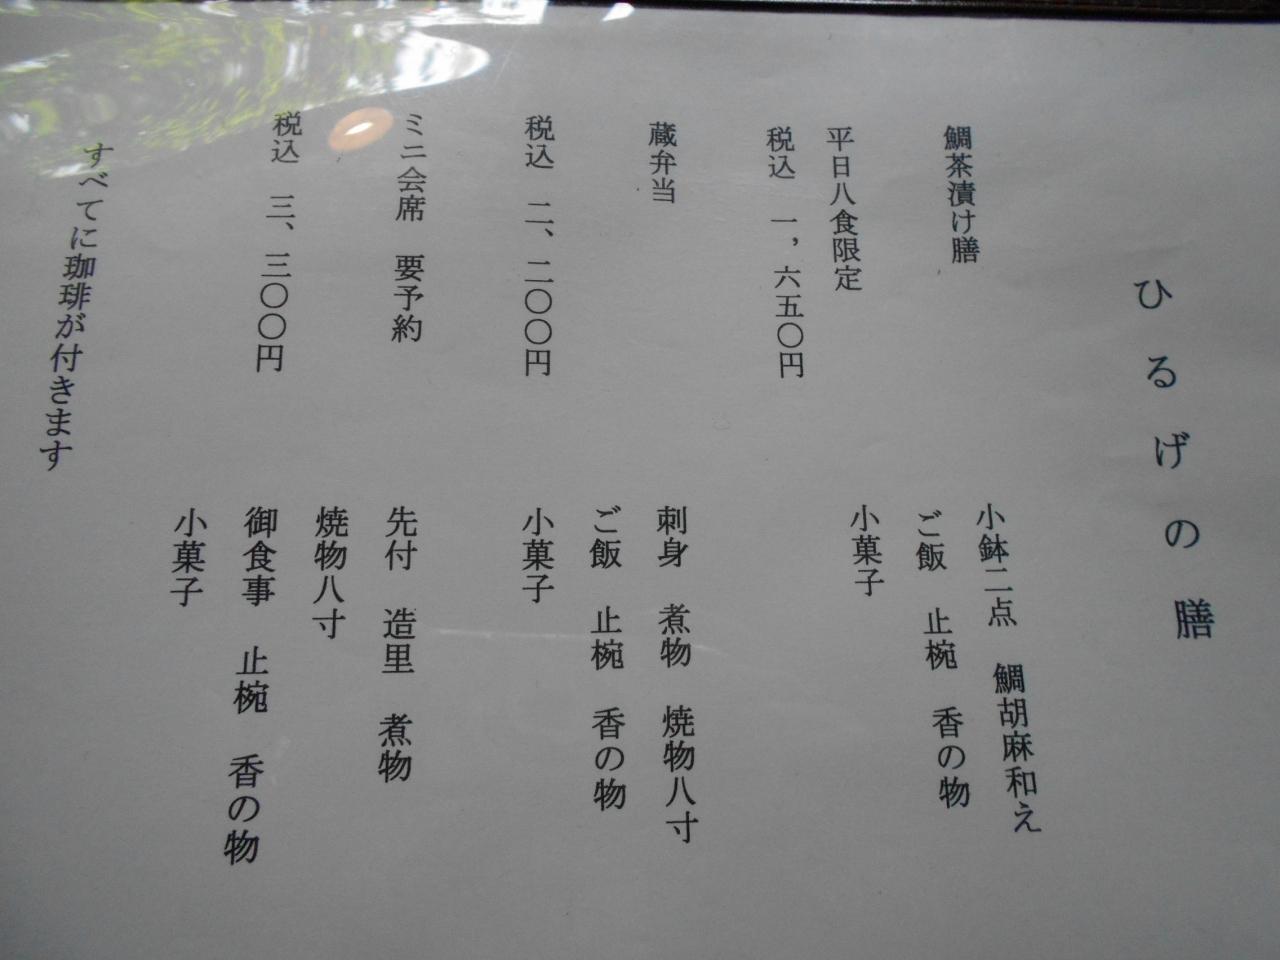 ひるげの膳
鯛茶漬け膳
小鉢二点　鯛胡麻和え
ご飯　止椀　香の物
平日八食限定
小菓子
税込　一，六五〇円
蔵弁当
刺身　煮物　焼物八寸
ご飯　止椀　香の物
税込　二、二〇〇円
小菓子
ミニ会席　要予約
先付　造里　煮物
焼物八寸
税込　三、三〇〇円
御食事　止椀　香の物
小菓子
すべてに珈琲が付きます